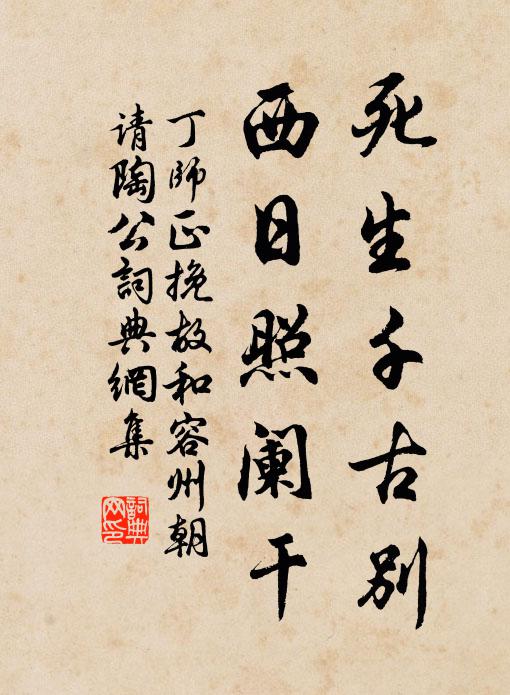 死生千古别
西日照阑干
丁師正挽故和容州朝
请陶公詞典網集
詞典網印